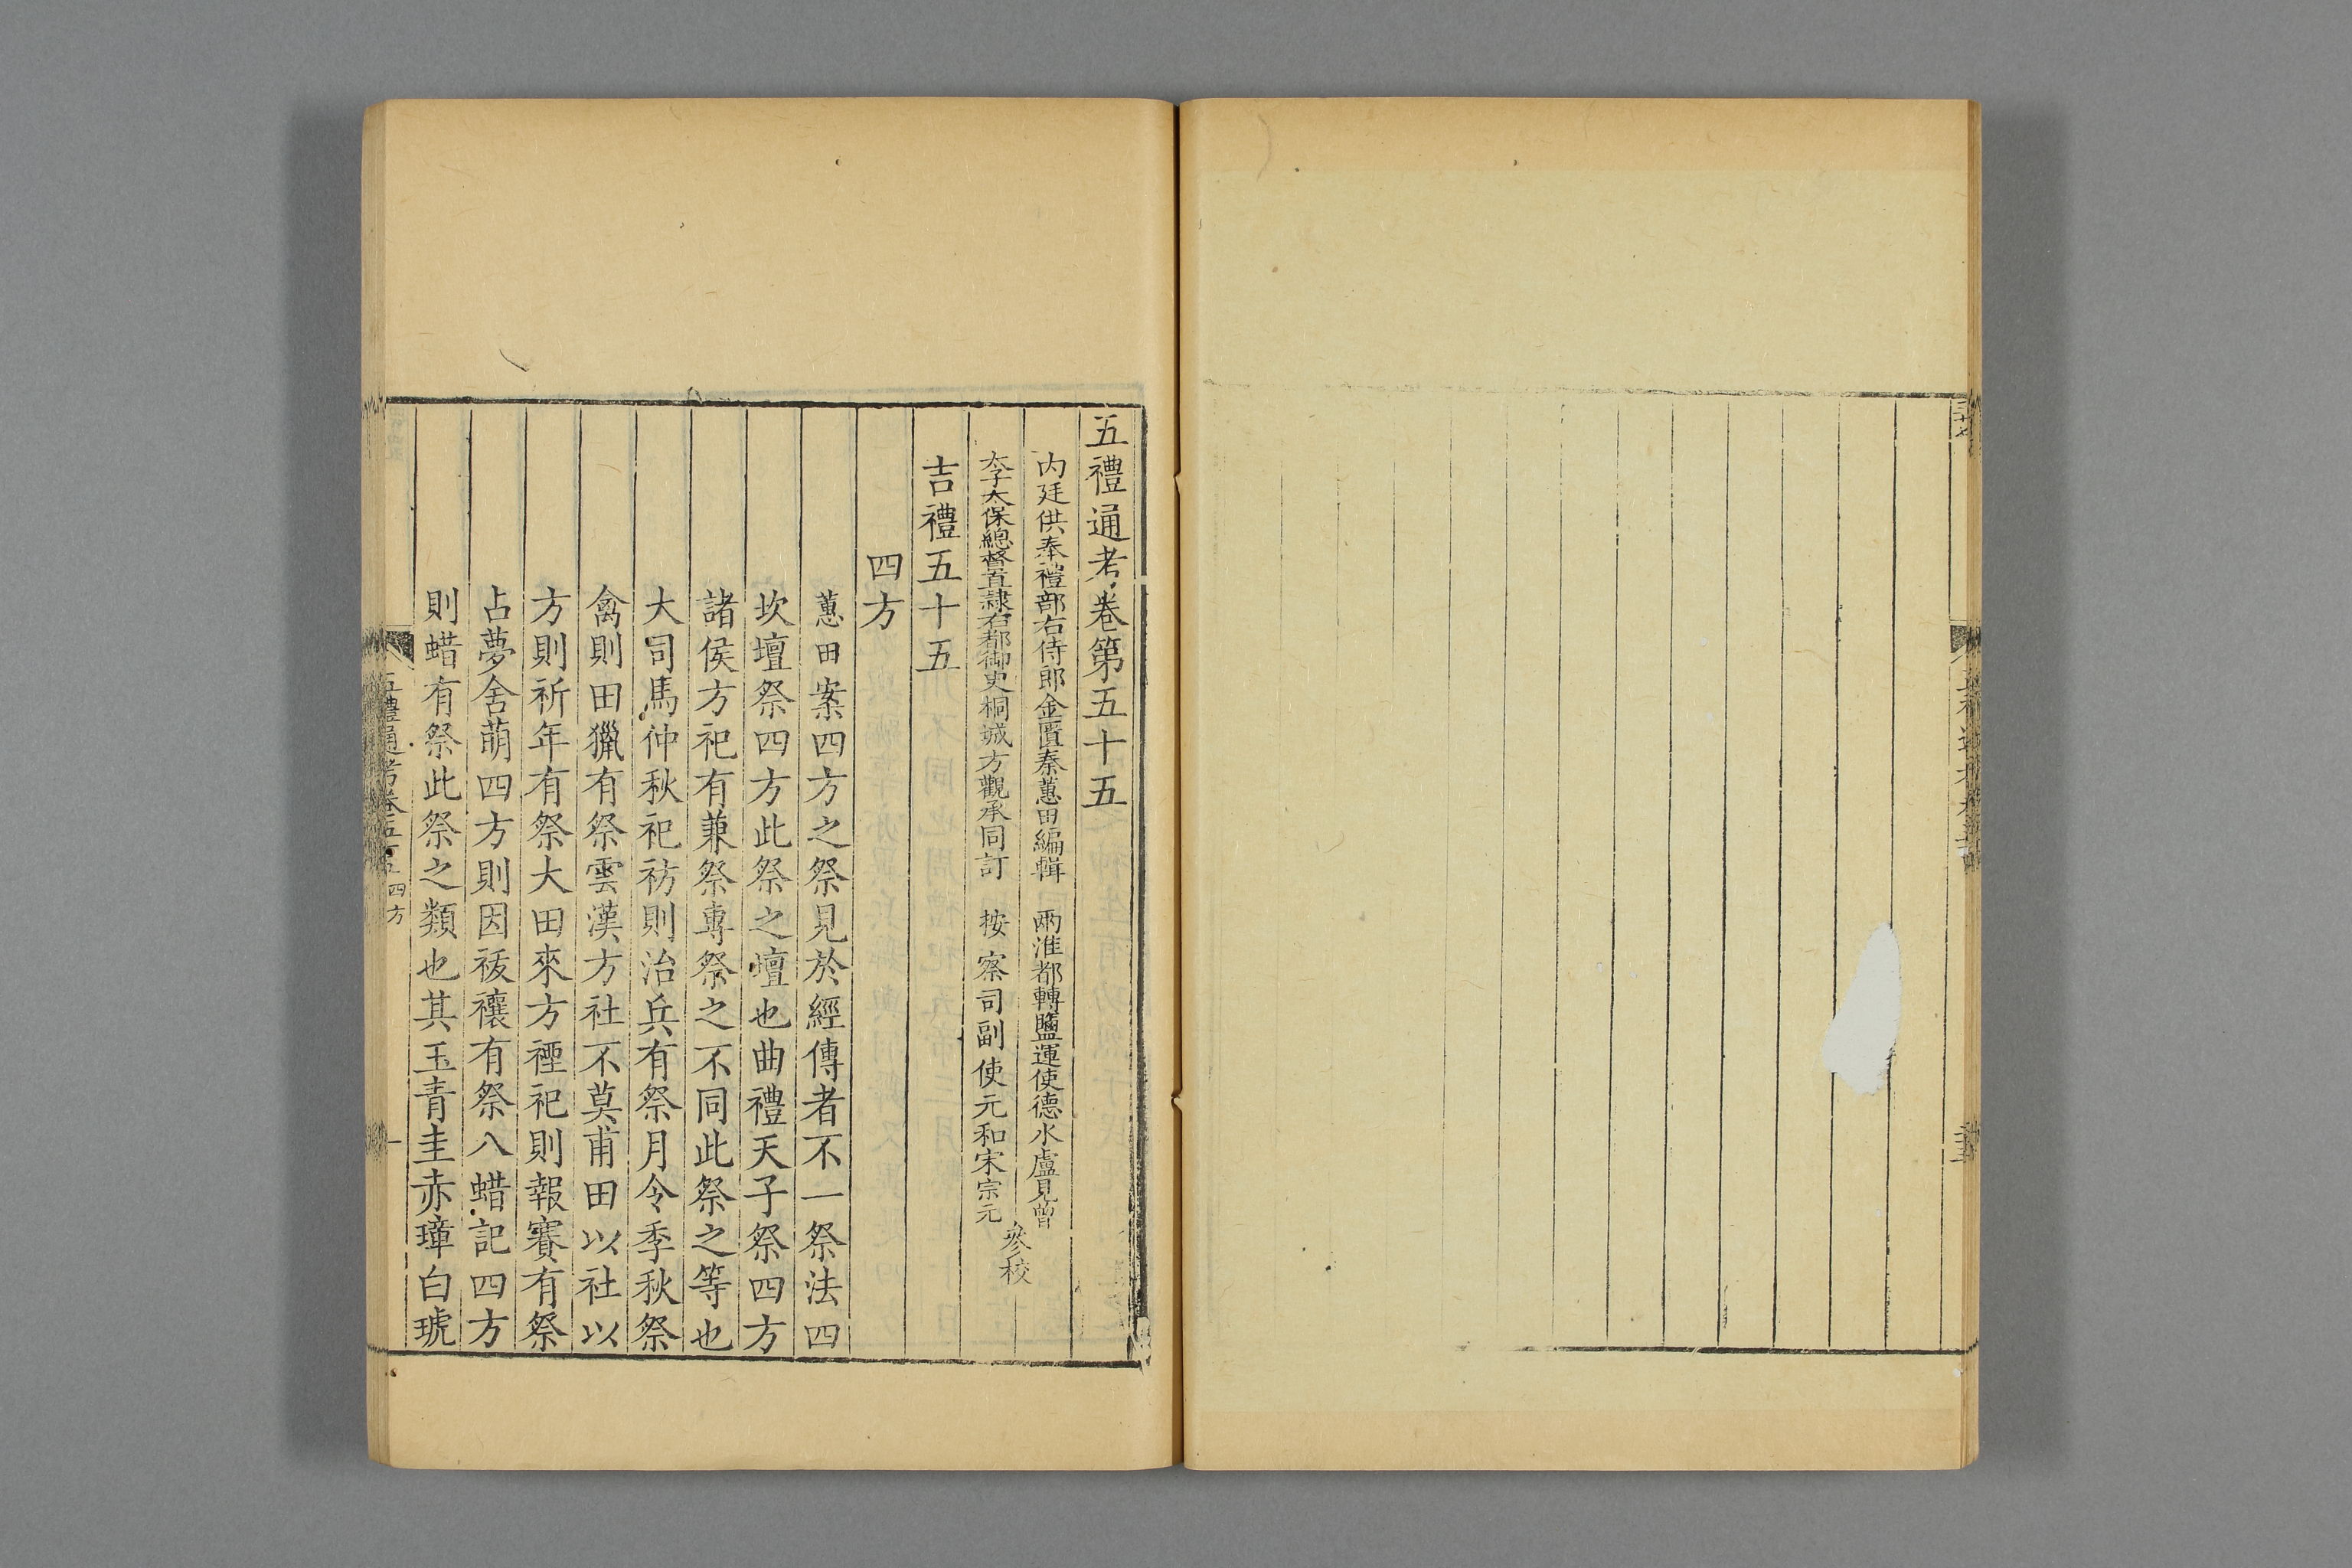 五禮通考卷第五十五
內廷供奉禮部右侍郎金匱秦蕙田編輯　兩淮都轉鹽運使德水盧見曾
太子太保總督直隸右都御史桐城方觀承同訂　按察司副使元和宋宗元
參校
吉禮五十五
四方
蕙田案四方之祭見於經傳者不一祭法四
坎壇祭四方此祭之壇也曲禮天子祭四方
諸侯方祀有兼祭專祭之不同此祭之等也
大司馬仲秋祀祊則治兵有祭月令季秋祭
禽則田獵有祭雲漢方社不莫甫田以社以
方則祈年有祭大田來方禋祀則報賽有祭
占夢舍萌四方則因祓禳有祭八蜡記四方
則蜡有祭此祭之類也其玉青圭赤璋白琥
五禮通考卷五十五 四方
一